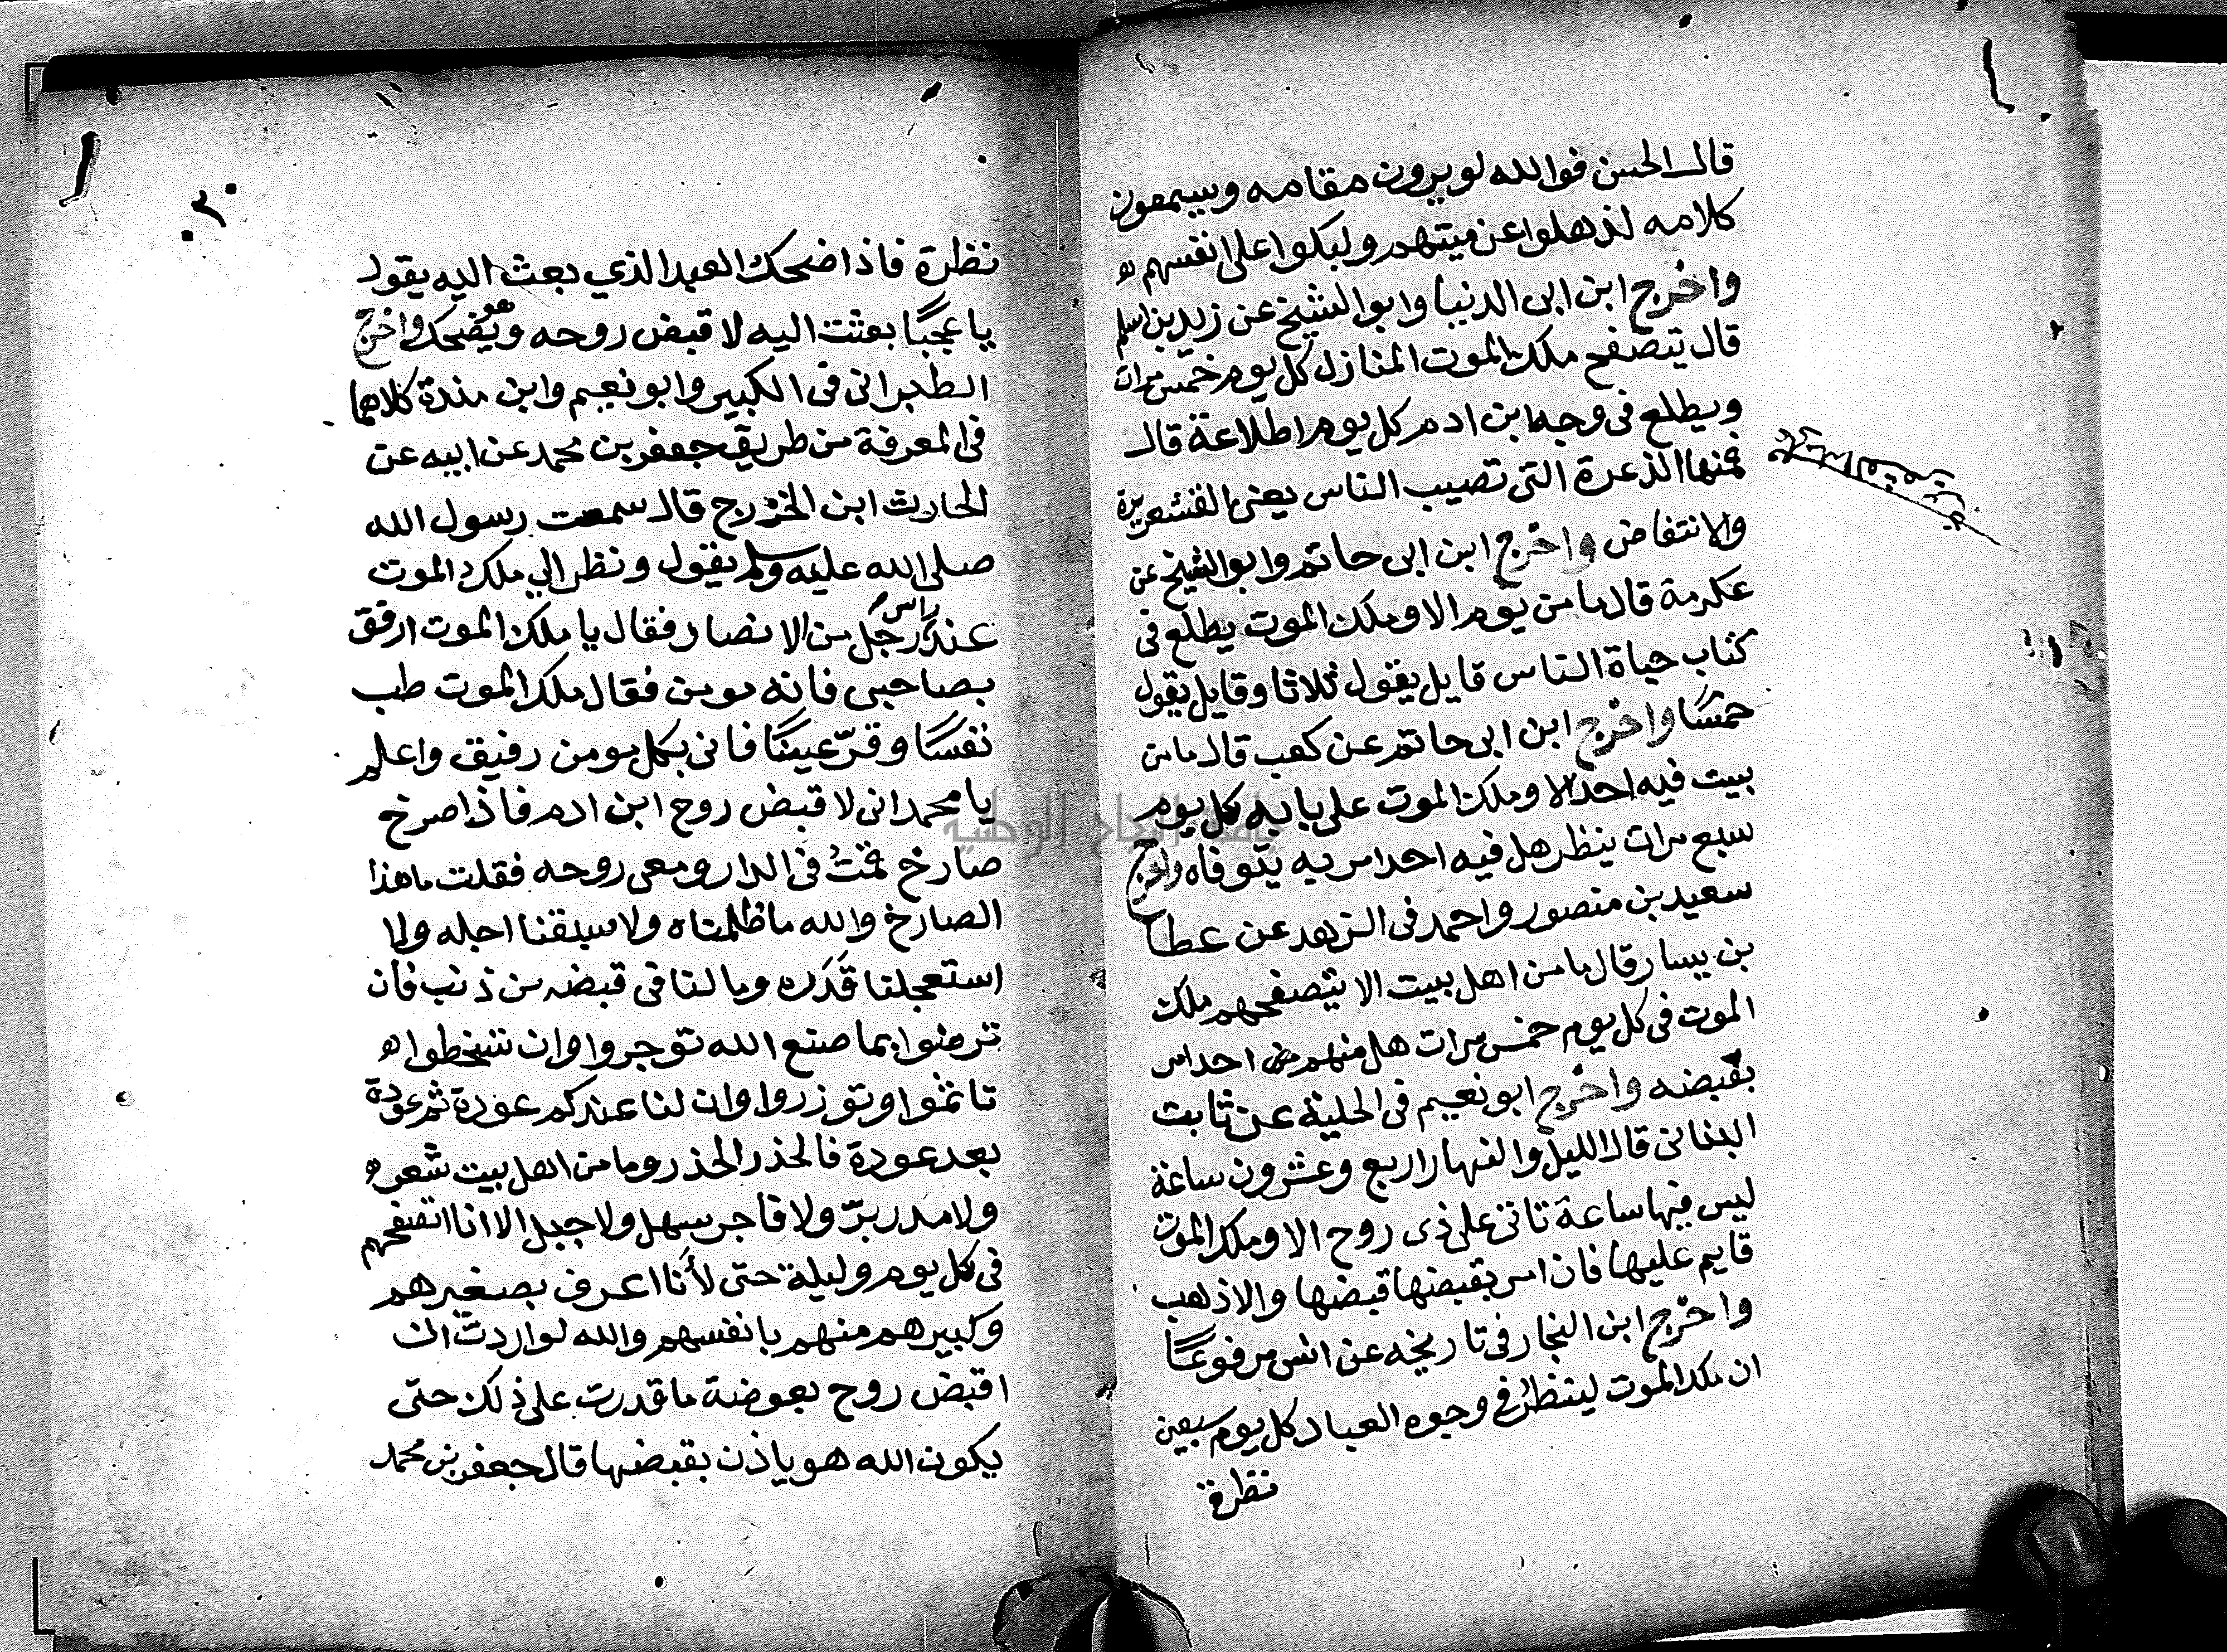 قال الحسن فوالله لو يرون مقامه ويسمعون
كلامه لذهلوا عن ميتهم ولبكوا على انفسهم
واخرج ابن ابى الدنيا وابو الشيخ عن زيد بن اسلم
قال يتصفح ملك الموت المنازل كل يوم خمس مرات
ويطلع فى وجه ابن ادم كل يوم اطلاعة قال
فمنها الذعرة التى تصيب الناس يعنى القشعريرة
والانتفاض واخرج ابن ابى حاتم وابو الشيخ عن
عكرمة قال ما من يوم الا وملك الموت يطلع فى
كتاب حياة الناس قايل يقول ثلاثا وقايل يقول
خمسًا واخرج ابن ابى حاتم عن كعب قال ما من
بيت فيه احد الا وملك الموت على بابه كل يوم
سبع مرات ينظر هل فيه احد امر به يتوفاه واخرج
سعيد بن منصور واحمد فى الزهد عن عطا
بن يسار قال ما من اهل بيت الا يتصفحهم ملك
الموت فى كل يوم خمس مرات هل منهم احد امر
بقبضه واخرج ابو نعيم فى الحلية عن ثابت
البنانى قال الليل والنهار اربع وعشرون ساعة
ليس فيها ساعة تاتى على ذى روح الا وملك الموت
قايم عليها فان امر بقبضها قبضها والا ذهب
واخرج ابن النجار فى تاريخه عن انس مرفوعًا
ان ملك الموت لينظر فى وجوه العباد كل يوم سبعين
نظرة
٣٠
نظرة فاذا ضحك العبد الذي بعث اليه يقول
يا عجبًا بعثت اليه لاقبض روحه وهو يضحك واخرج
الطبرانى فى الكبير وابو نعيم وابن مندة كلاهما
فى المعرفة من طريق جعفر بن محمد عن ابيه عن
الحارث ابن الخزرج قال سمعت رسول الله
صلى الله عليه وسلم يقول ونظر الي ملك الموت
عند راس رجل من الانصار فقال يا ملك الموت ارفق
بصاحبى فانه مومن فقال ملك الموت طب
نفسًا وقرّ عينًا فانى بكل مومن رفيق واعلم
يا محمد انى لاقبض روح ابن ادم فاذا صرخ
صارخ قمتُ فى الدار ومعى روحه فقلت ما هذا
الصارخ والله ما ظلمناه ولا سبقنا اجله ولا
استعجلنا قَدَره وما لنا فى قبضه من ذنب فان
ترضوا بما صنع الله توجروا وان تسخطوا
تاثموا وتوزروا وان لنا عندكم عودة ثم عودة
بعد عودة فالحذر الحذر وما من اهل بيت شعر
ولا مدر برّ ولا فاجر سهل ولا جبل الا انا اتصفحهم
فى كل يوم وليلة حتى لأنا اعرف بصغيرهم
وكبيرهم منهم بانفسهم والله لو اردت ان
اقبض روح بعوضة ما قدرت على ذلك حتى
يكون الله هو ياذن بقبضها قال جعفر بن محمد
جامعة النجاح الوطنية